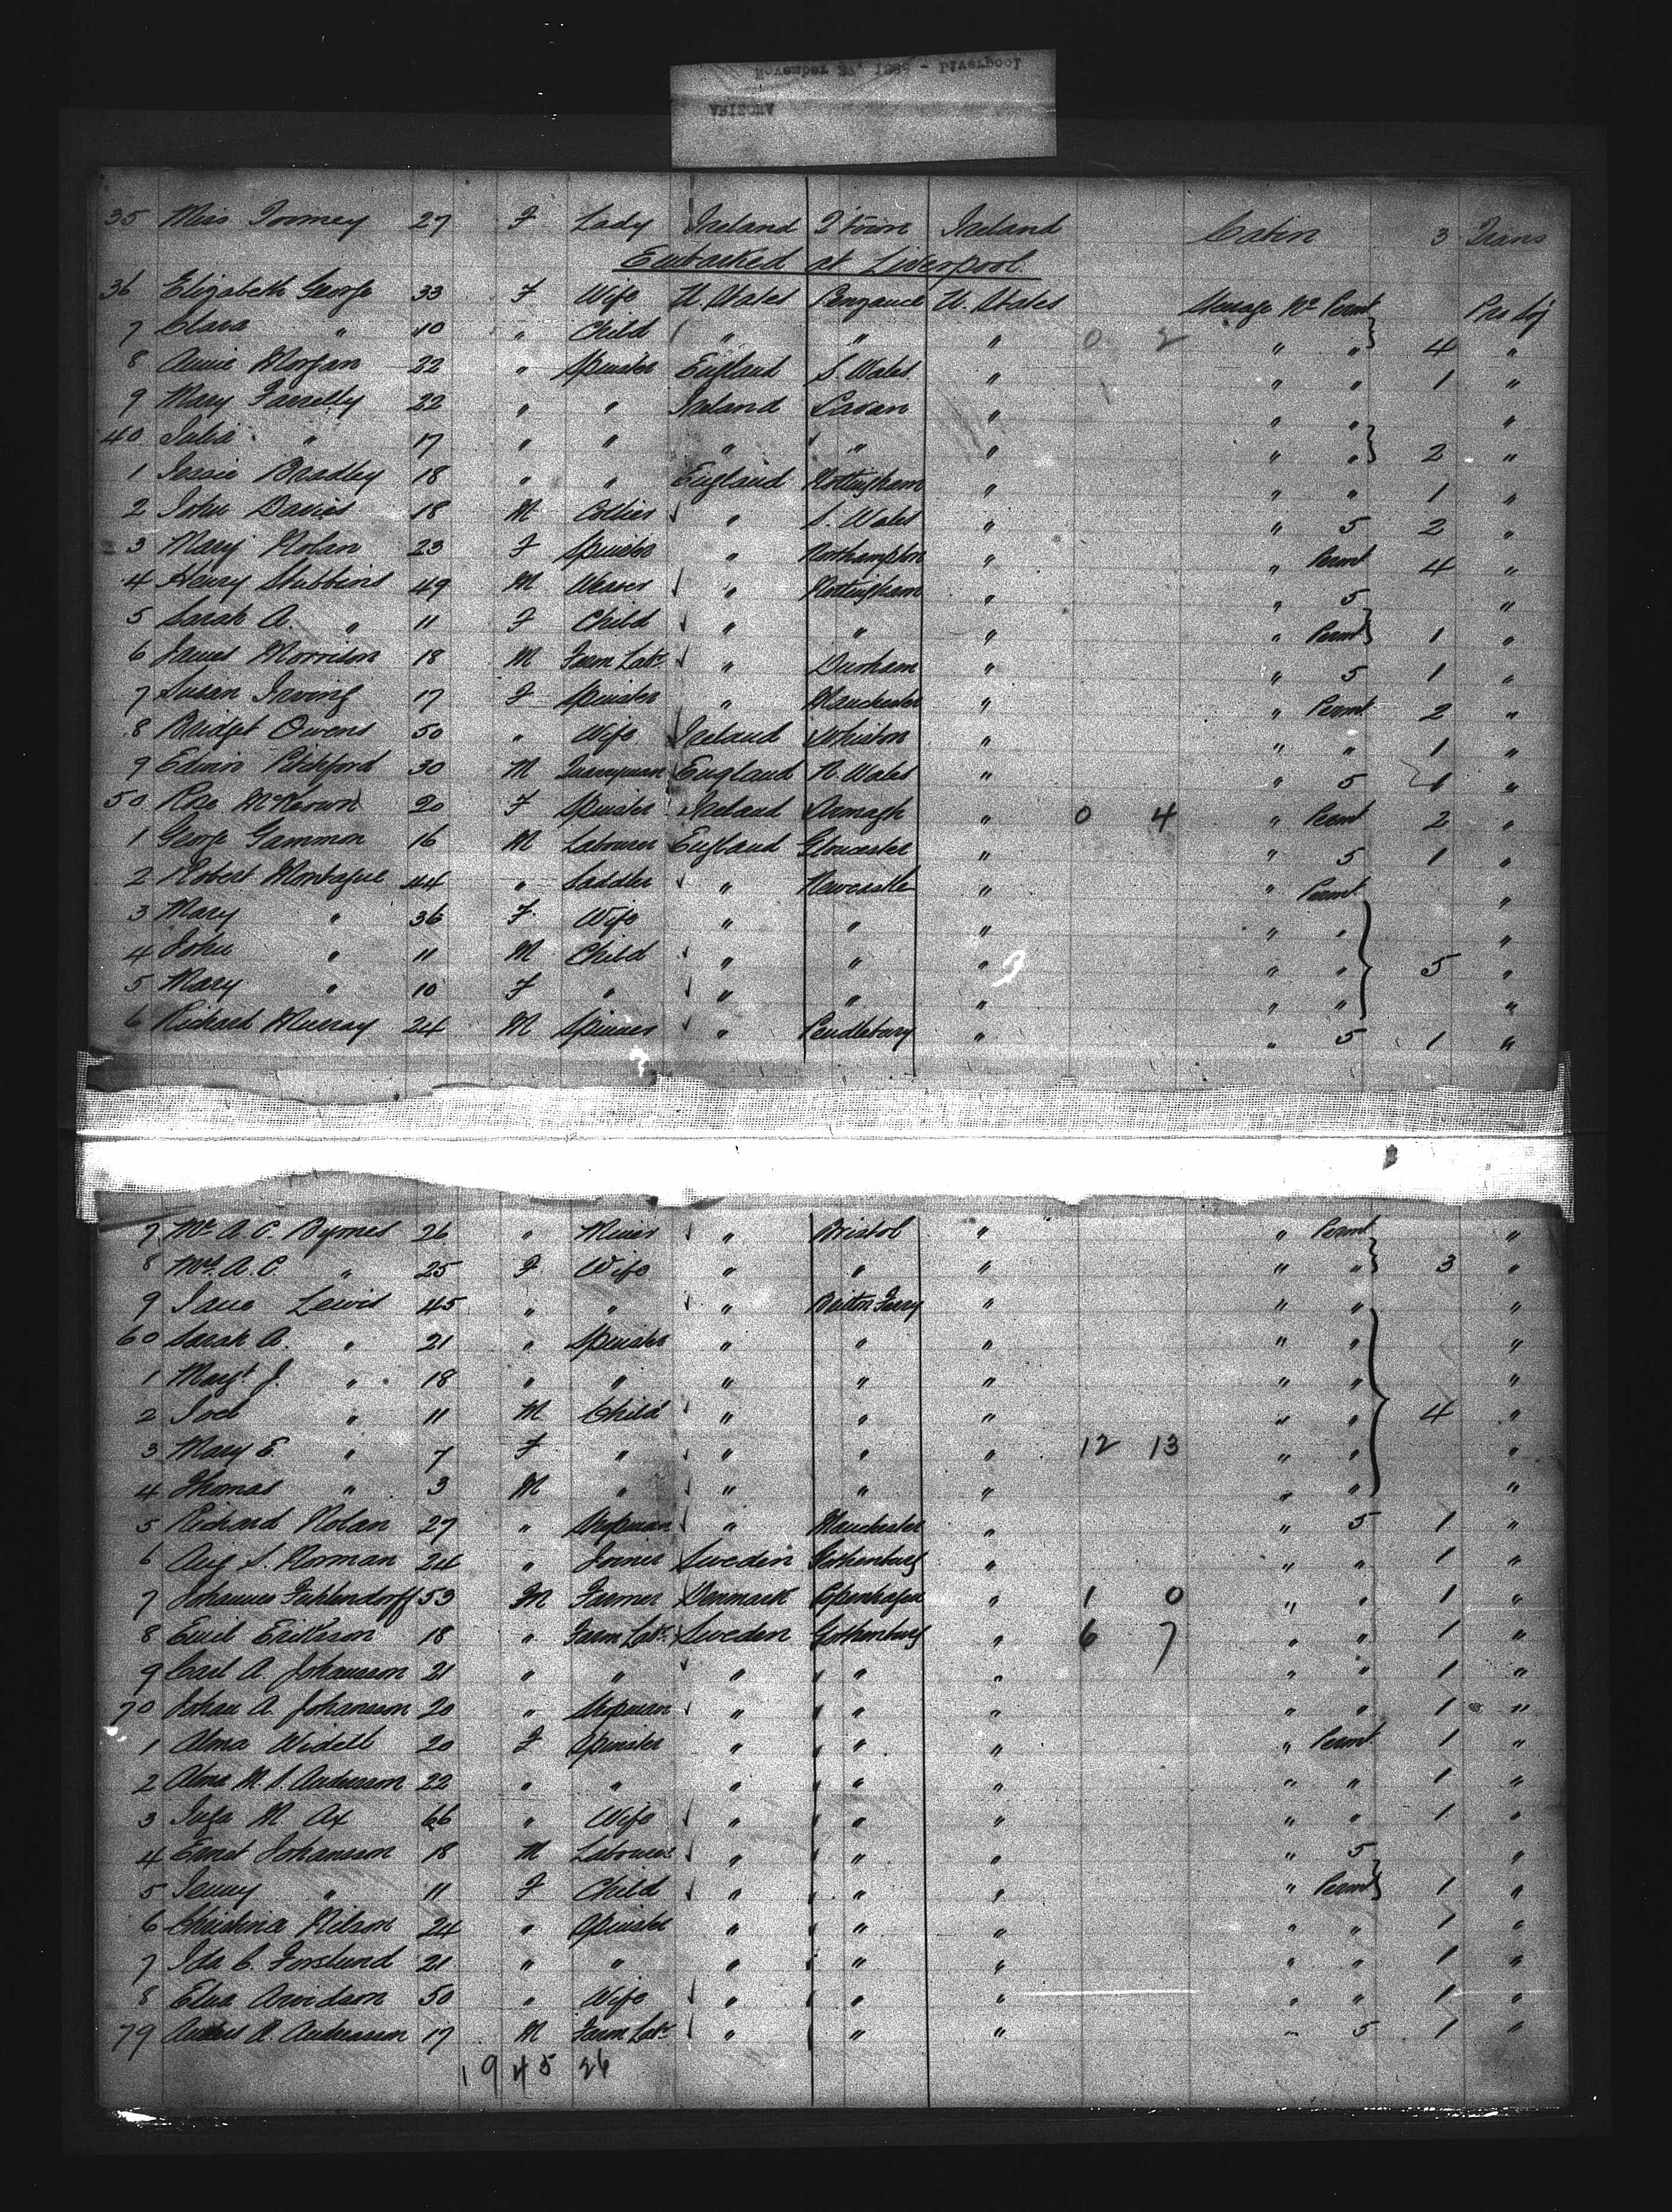 November 27, 18 - Liverpool
ARIZONA
35 Miss Toomey 27 F Lady Ireland Q'town Ireland Cabin 3 Trans
Embarked at Liverpool.
36 Elizabeth George 33 F Wife U. States Penzance U. States Steerage Permt Pro Soj
7 Clara " 10 " Child " " " 0 2 " " } 4 "
8 Annie Morgan 22 " Spinster England S. Wales " " " 1 "
9 Mary Farrelly 22 " " Ireland Cavan " " " "
40 Julia " 17 " " " " " " " } 2 "
1 Jessie Bradley 18 " " England Nottingham " " " 1 "
2 John Davies 18 M Collier " S. Wales " " 5 2 "
3 Mary Nolan 23 F Spinster " Northampton " " Permt 4 "
4 Henry Stubbins 49 M Weaver " Nottingham " " 5 "
5 Sarah A. " 11 F Child " " " " Permt } 1 "
6 James Morrison 18 M Farm Labr " Durham " " 5 1 "
7 Susan Irving 17 F Spinster " Manchester " " Permt 2 "
8 Bridget Owens 50 " Wife Ireland Whiston " " " 1 "
9 Edwin Pitchford 30 M Quarryman England N. Wales " " 5 1 "
50 Rose McKeown 20 F Spinster Ireland Armagh " 0 4 " Permt 2 "
1 George Gammon 16 M Labourer England Gloucester " " 5 1 "
2 Robert Montague 44 " Saddler " Newcastle " Permt "
3 Mary " 36 F Wife " " " " " "
4 John " 11 M Child " " " " " } 5 "
5 Mary " 10 F " " " " " " "
6 Richard Murray 24 M Spinner " Pendlebury " " 5 1 "
7 Mr A. C. Byrnes 26 " Miner " Bristol " " Permt "
8 Mrs A. C. " 25 F Wife " " " " " } 3 "
9 Jane Lewis 45 " " " Briton Ferry " " " "
60 Sarah A. " 21 " Spinster " " " " " "
1 Margt J. " 18 " " " " " " " "
2 Joel " 11 M Child " " " " " } 4 "
3 Mary E. " 7 F " " " " 12 13 " " "
4 Thomas " 3 M " " " " " " "
5 Richard Nolan 27 " Shopman " Manchester " " 5 1 "
6 Aug S. Norman 24 " Joiner Sweden Gothenburg " " " 1 "
7 Johannes Fuhlendorff 53 M Farmer Denmark Copenhagen " 1 0 " " 1 "
8 Emil Erikson 18 " Farm Labr Sweden Gothenburg " 6 7 " " 1 "
9 Carl A. Johansson 21 " " " " " " " 1 "
70 Johan A. Johanson 20 " Shopman " " " " " 1 "
1 Alma Widell 20 F Spinster " " " " Permt 1 "
2 Alma M. S. Andersson 22 " " " " " " " 1 "
3 Inga M. Ax 66 " Wife " " " " " 1 "
4 Ernst Johansson 18 M Labourer " " " " 5 "
5 Jenny " 11 F Child " " " " Permt } 1 "
6 Christina Nilson 24 " Spinster " " " " " 1 "
7 Ida C. Forslund 21 " " " " " " " 1 "
8 Elna Arvidson 50 " Wife " " " " " 1 "
79 A. Andersson 17 M Farm Labr " " " " 5 1 "
19 45 26